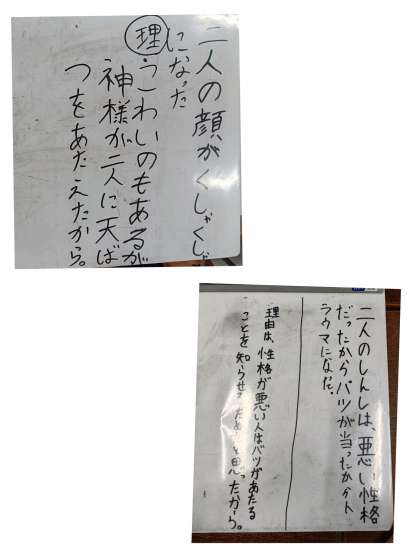 二人の顔がくしゃくしゃ
になった
理・こわいのもあるが
神様が二人に天ば
つをあたえたから。
二人のしんしは、悪い性格
だったからバツが当ったかト
ラウマになた。
理由は、性格が悪い人はバツがあたる
ことを知らせ ため と思ったから。